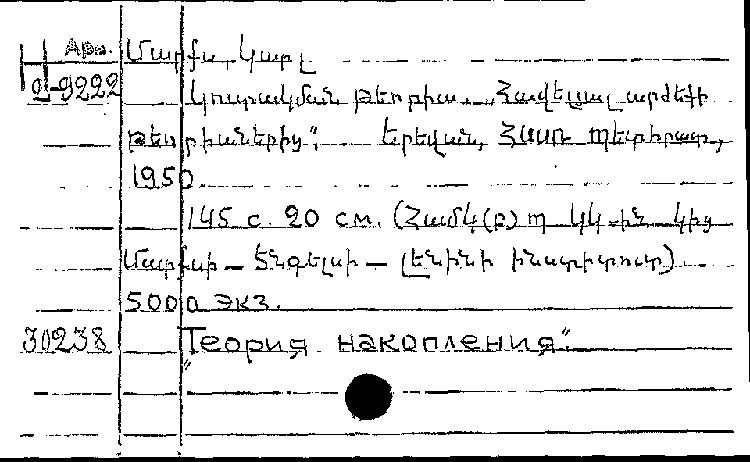 Арм. Մարքս, Կարլ
2-9222
Կուտակման թեորիա. „Հավելյալ արժեքի
թեորիաներից“. Երեվան, Հայպետհրատ,
1950
145 с. 20 см. (Համկ(բ)Պ ԿԿ-ին կից
Մարքսի – Էնգելսի – Լենինի ինստիտուտ)
5000 экз.
30238 „Теория накопления“.